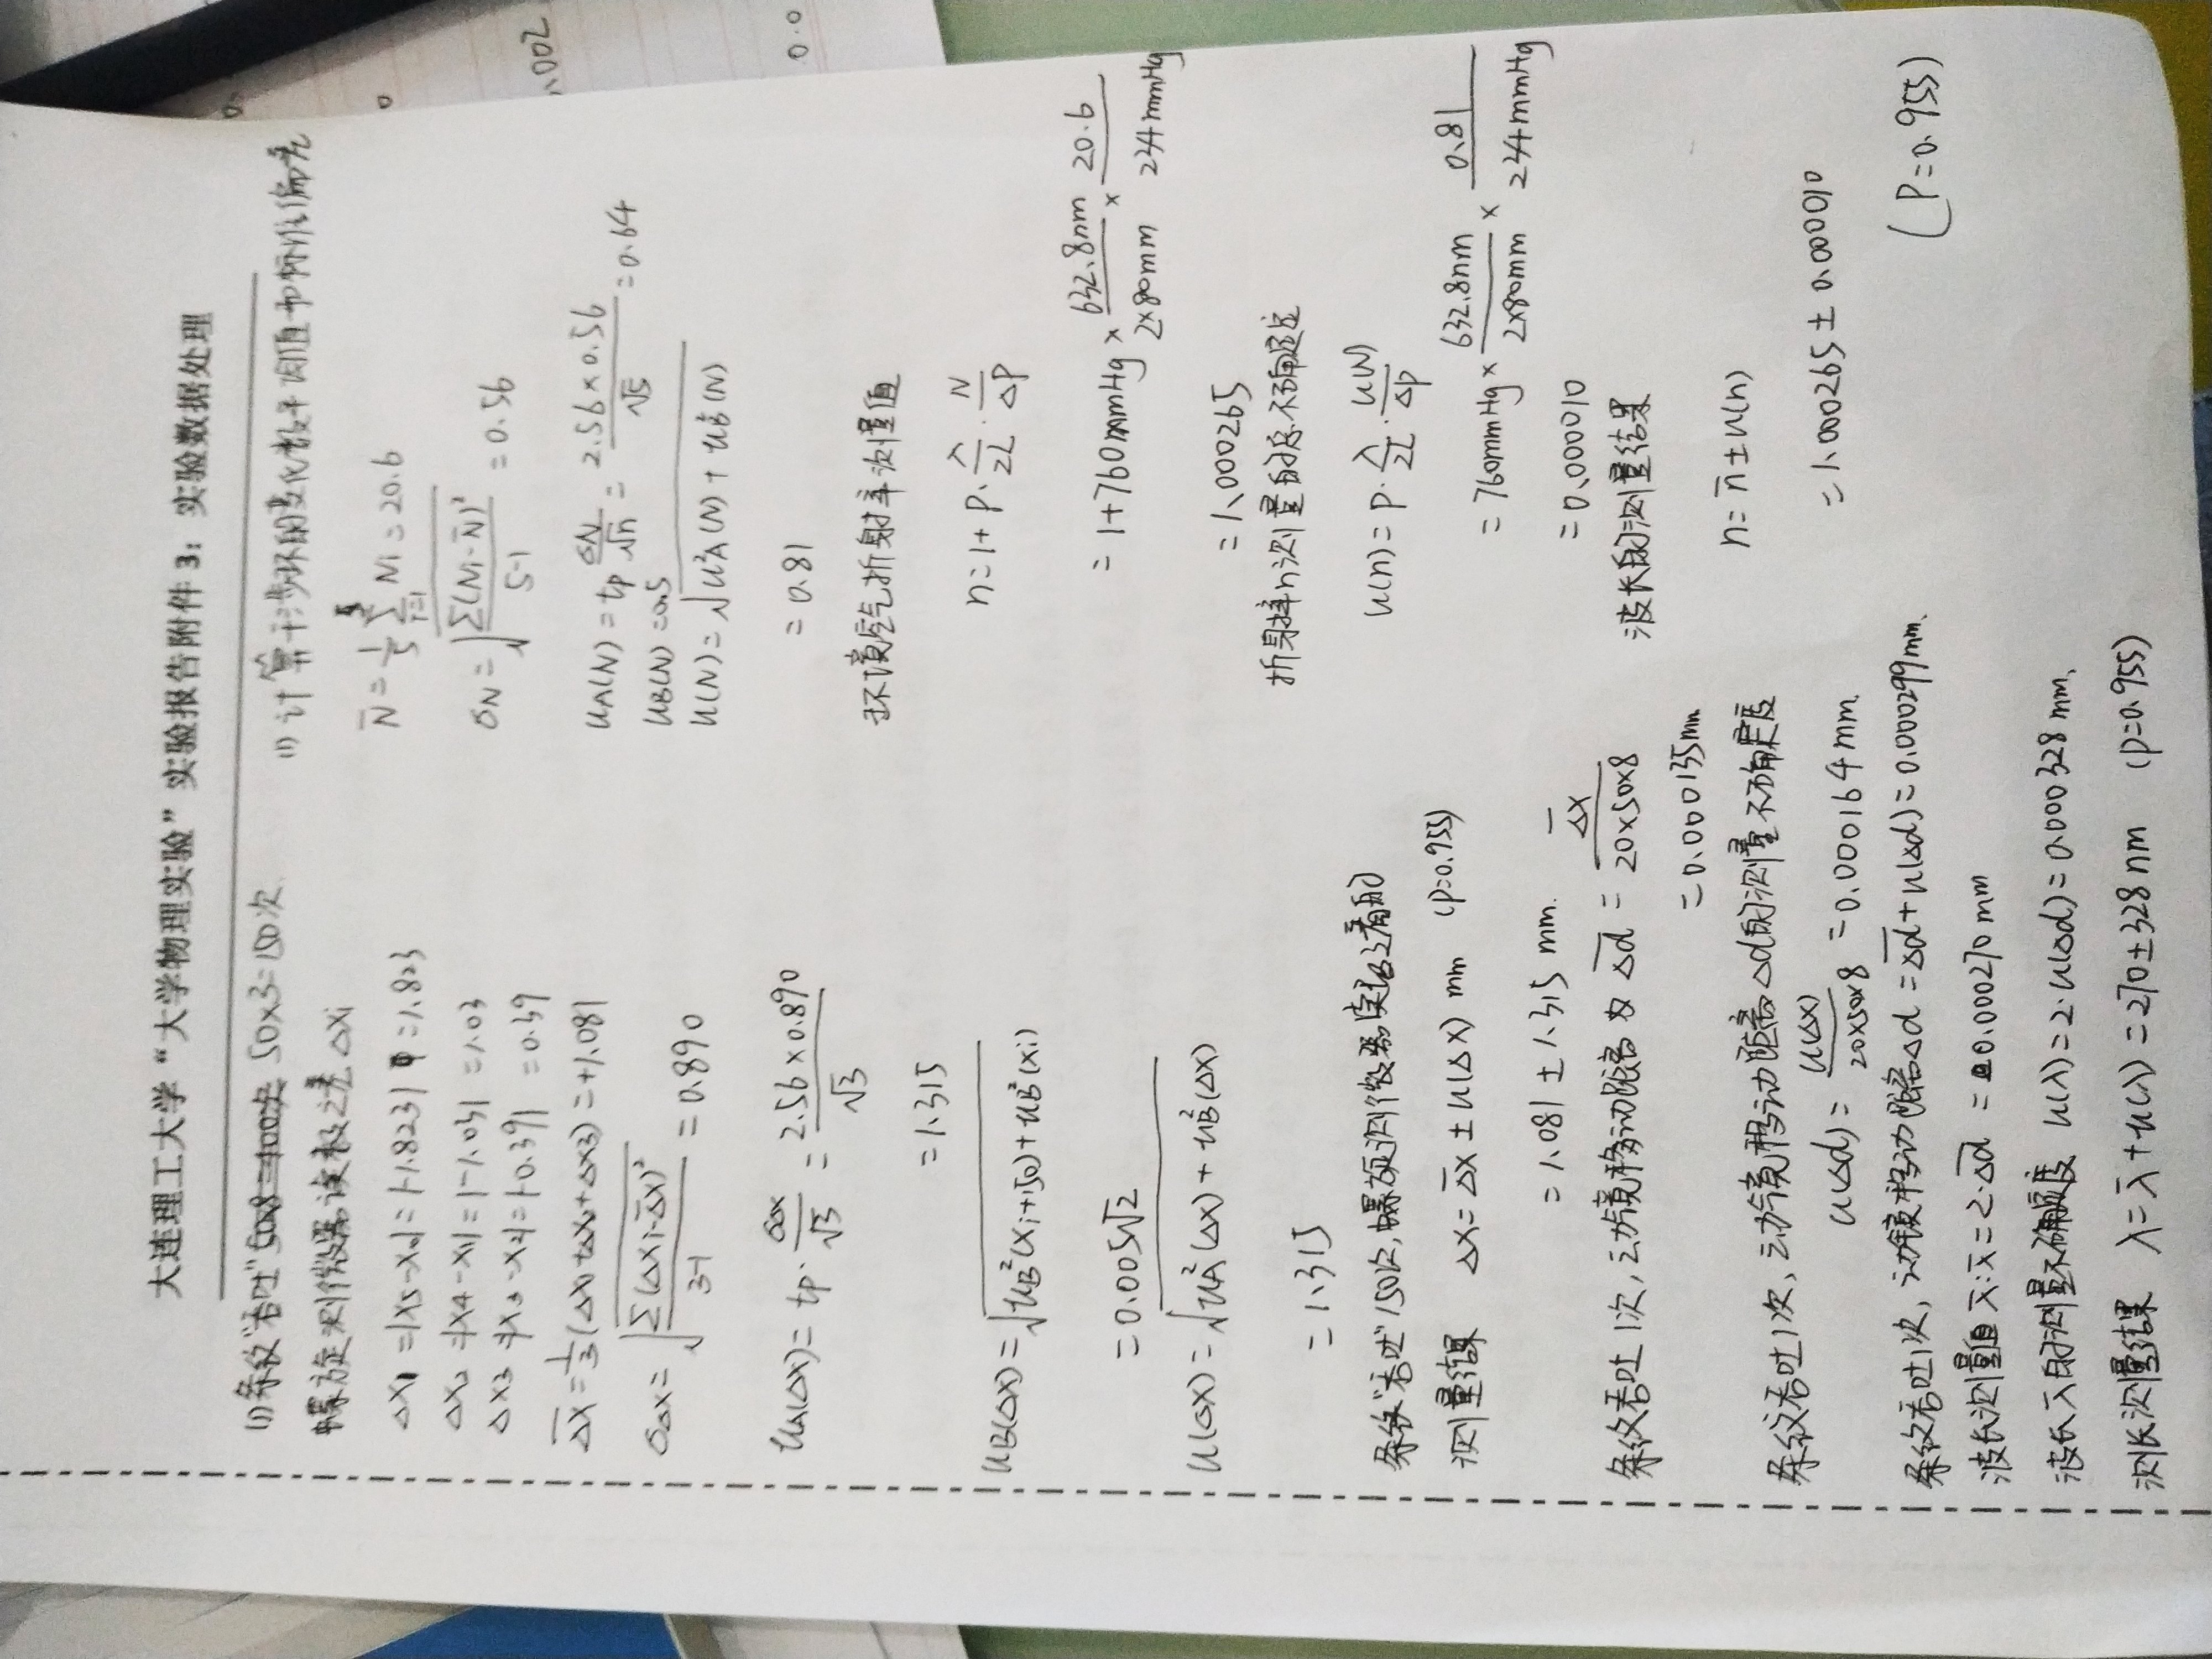 大连理工大学“大学物理实验”实验报告附件3：实验数据处理
(1)条纹"吞吐" 50×3=150次
螺旋测微器读数之差 Δxi
Δx1 =|x5-x0|=|-1.823| =1.823
Δx2 =|x4-x1|=|-1.03| =1.03
Δx3 =|x3-x2|=|-0.39| =0.39
Δx̄=1/3(Δx1+Δx2+Δx3)=+1.081
σΔx=√(Σ(Δxi-Δx̄)²/(3-1)) =0.890
uA(Δx)= tp·σΔx/√3 = 2.56×0.890/√3
=1.315
uB(Δx)=√(uB²(xi+150)+uB²(xi))
=0.005√2
u(Δx)=√(uA²(Δx)+uB²(Δx))
=1.315
条纹"吞吐"150次,螺旋测微器读数之差的
测量结果 Δx=Δx̄±u(Δx) mm (P=0.955)
=1.081±1.315 mm.
条纹吞吐1次,动镜移动距离为 Δd̄ = Δx̄/(20×50×8)
=0.000135mm
条纹吞吐1次,动镜移动距离Δd的测量不确定度
u(Δd)= u(Δx)/(20×50×8) =0.000164mm.
条纹吞吐1次,动镜移动距离Δd =Δd̄+u(Δd)=0.000299mm.
波长测量值 λ̄:λ̄=2·Δd̄ =0.000270mm
波长λ的测量不确定度 u(λ)=2·u(Δd)=0.000328 mm.
测长测量结果 λ=λ̄+u(λ)=270±328nm (P=0.955)
(1)计算干涉环的变化数平均值和标准偏差
N̄=1/5 Σ(i=1→5) Ni=20.6
σN=√(Σ(Ni-N̄)²/(5-1)) =0.56
uA(N)=tp σN/√n = 2.56×0.56/√5 =0.64
uB(N)=0.5
u(N)=√(u²A(N)+u²B(N))
=0.81
环境空气折射率测量值
n=1+P·λ/2L·N/ΔP
=1+760mmHg×632.8nm/(2×80mm)×20.6/234mmHg
=1.000265
折射率n测量的总不确定度
u(n)=P·λ/2L·u(N)/ΔP
=760mmHg×632.8nm/(2×80mm)×0.81/234mmHg
=0.000010
波长的测量结果
n=n̄±u(n)
=1.000265±0.000010
(P=0.955)
0.
0
1.002
0.0